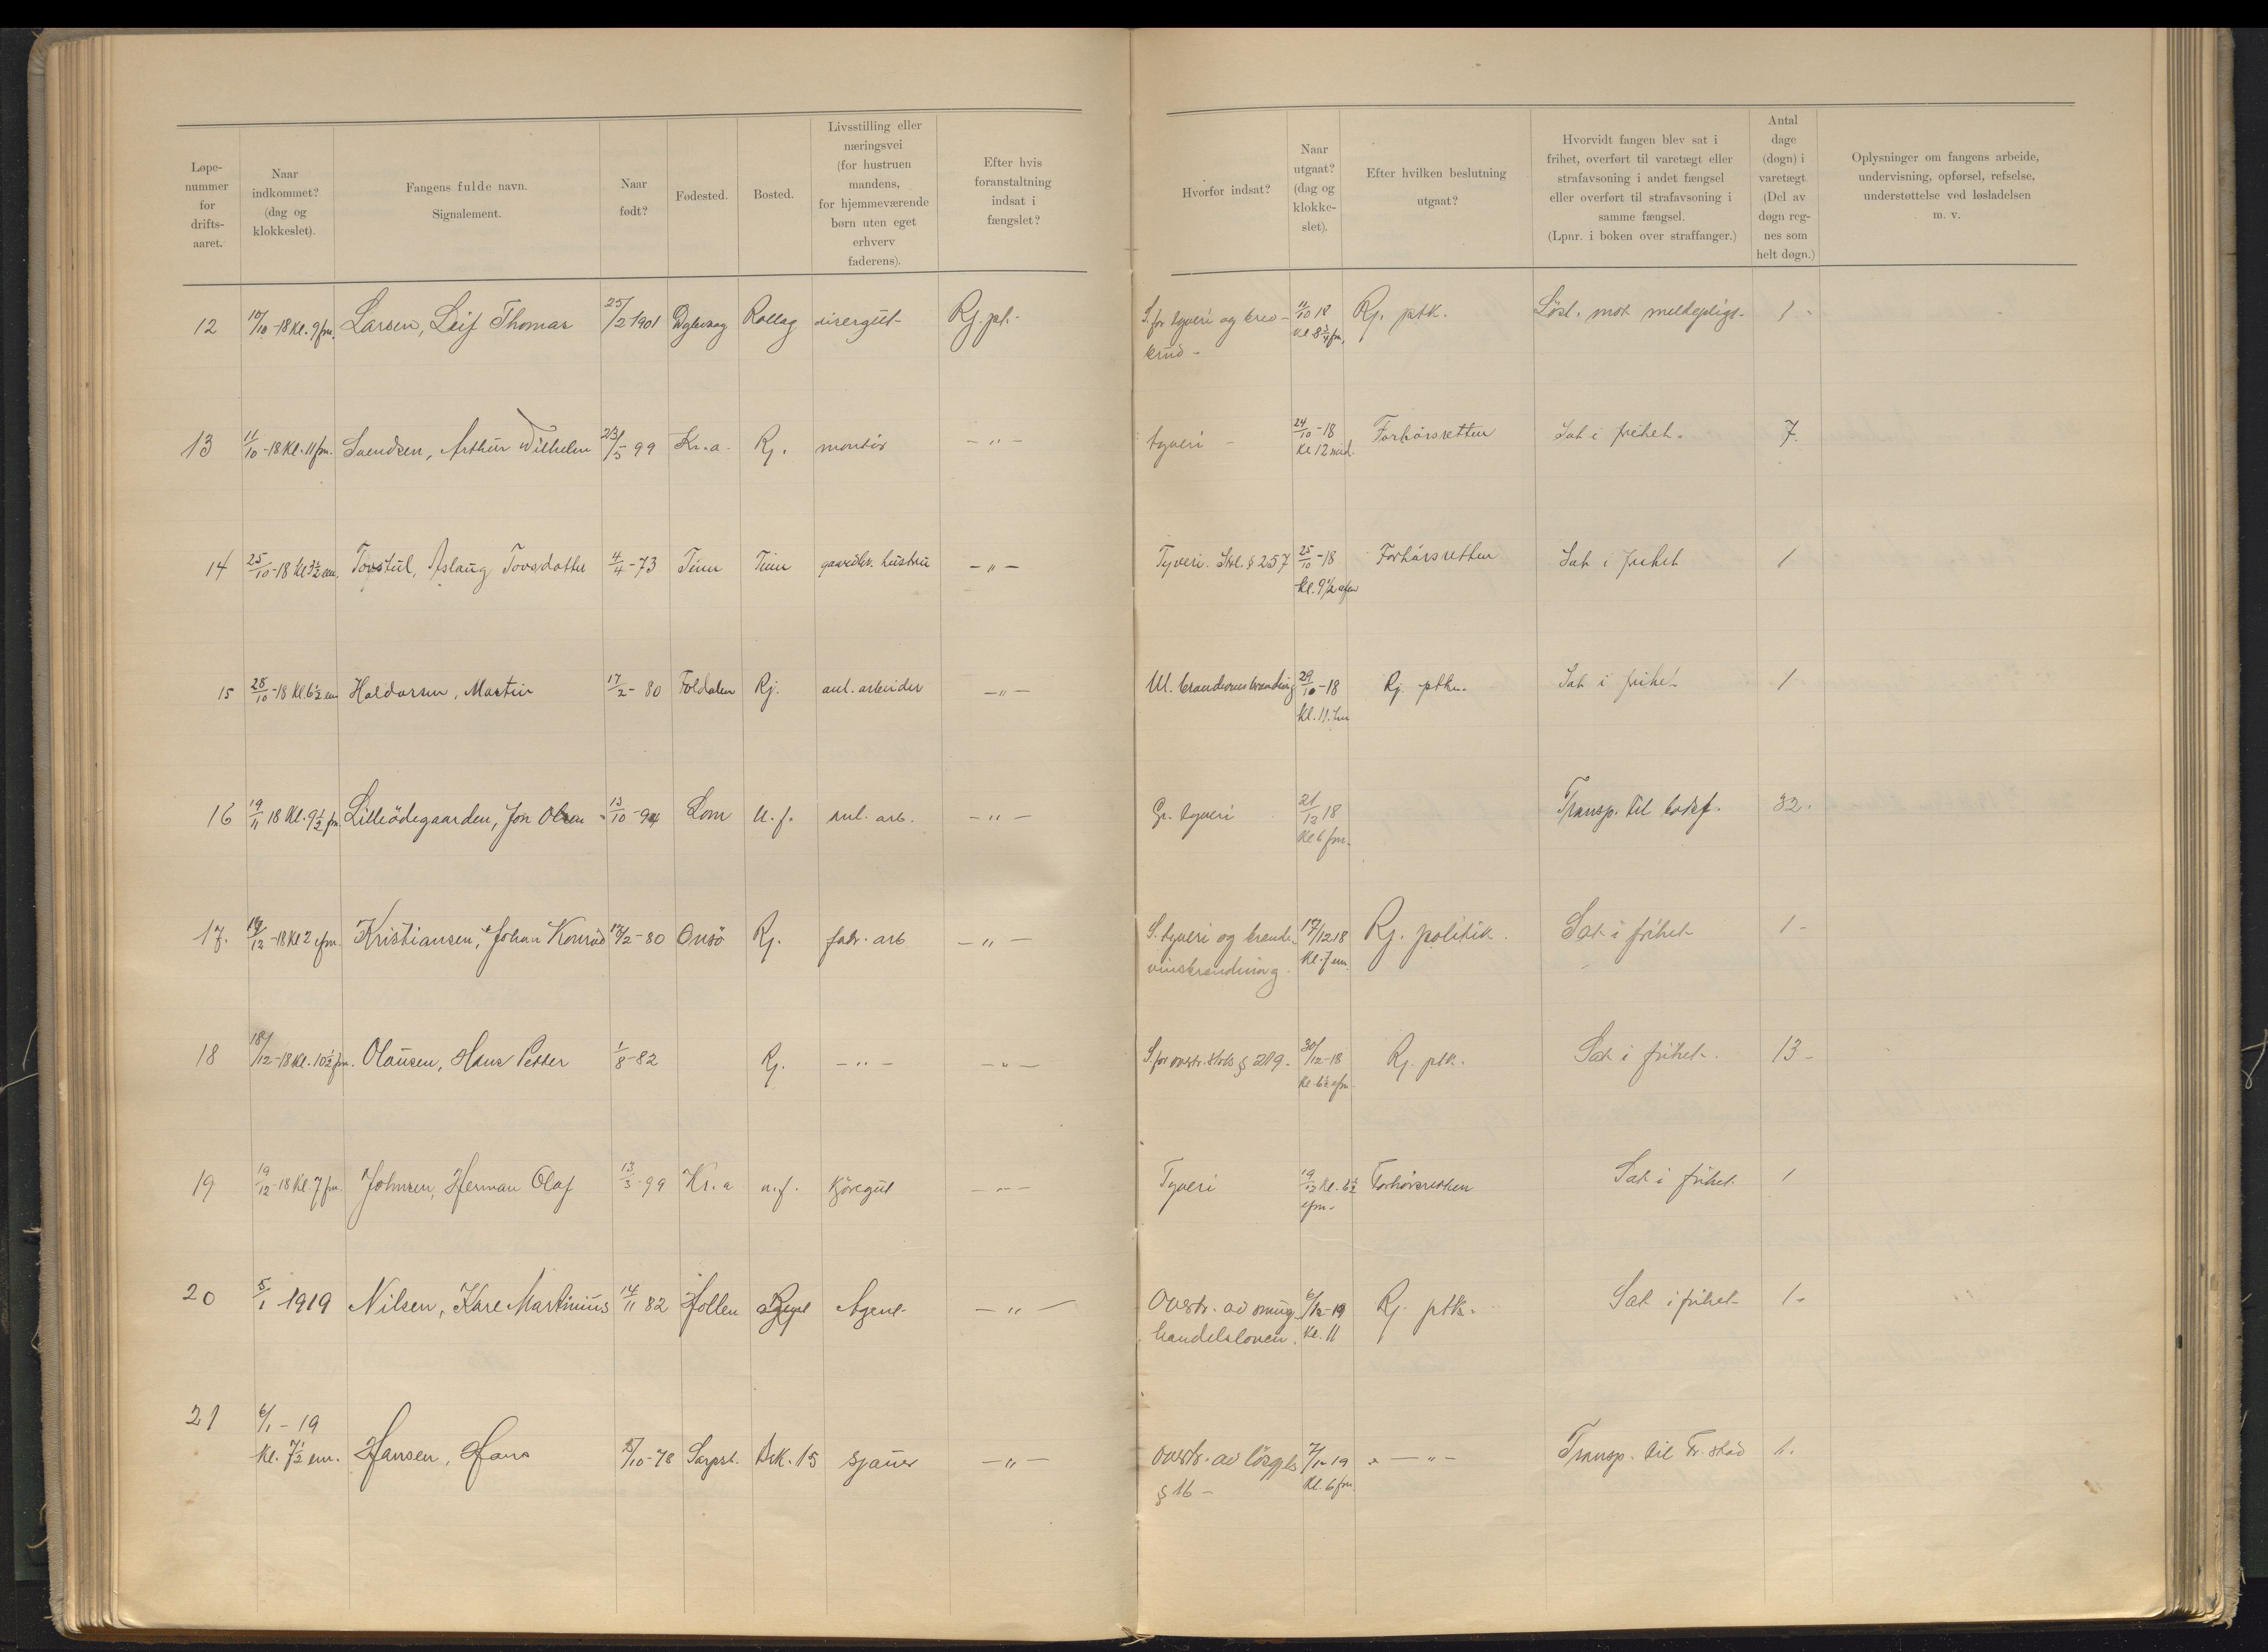 Løpe-
nummer
for
drifts-
aaret.
Naar
indkommet?
(dag og
klokkeslet).
Fangens fulde navn.
Signalement.
Naar
født?
Fødested.
Bosted.
Livsstilling eller
næringsvei
(for hustruen
mandens,
for hjemmeværende
børn uten eget
erhverv
faderens).
Efter hvis
foranstaltning
indsat i
fængslet?
Hvorfor indsat?
Naar
utgaat?
(dag og
klokke-
slet).
Efter hvilken beslutning
utgaat?
Hvorvidt fangen blev sat i
frihet, overført til varetægt eller
strafavsoning i andet fængsel
eller overført til strafavsoning i
samme fængsel.
(Lpnr. i boken over straffanger.)
Antal
dage
(døgn) i
varetægt
(Del av
døgn reg-
nes som
helt døgn.)
Oplysninger om fangens arbeide,
undervisning, opførsel, refselse,
understøttelse ved løsladelsen
m. v.
12 10/10-18 Kl. 9 fm. Larsen, Leif Thomas 25/2 1901 Rollag visergut Rj. pk. S. for tyveri og 11/10 18 Rj. ptk. Løsl. mot meldepligt 1
Kl 8 3/4 fm.
13 11/10-18 Kl. 11 fm. Svendsen, Arthur Wilhelm 23/5-99 Kr.a. Rj. montør -"- tyveri 24/10-18 Forhørsretten Sat i frihet. 7.
Kl 12 mid.
14 25/10-18 Kl 3 1/2 em. Tovstul, Aslaug Tovsdatter 4/4-73 Tinn Tinn gaardbr. hustru -"- Tyveri. Strl. § 257 25/10-18 Forhørsretten Sat i frihet 1
Kl. 9 1/2
15 28/10-18 Kl. 6 1/2 em Haldorsen, Martin 17/2-80 Foldalen Rj. anl. arbeider -"- Ul. 29/10-18 Rj. ptk. Sat i frihet 1
Kl. 11. fm
16 19/11 18 Kl. 9 1/2 fm. Lilleødegaarden, Jon Olsen 13/10-94 Lom U.f. anl. arb. -"- Gr. tyveri 21/12 18 Transp. til botsf. 32.
Kl 6 fm.
17. 16/12-18 Kl 2 efm. Kristiansen, Johan Konrad 17/2-80 Onsö Rj. fabr. arb -"- S. tyveri og brænde- 17/12 18 Rj. politik. Sat i frihet 1-
vinsbrænding. Kl. 7 em.
18 18/12-18 Kl. 10 1/2 fm. Olausen, Hans Petter 1/8-82 Rj. -"- -"- S. for overtr. strls § 219. 30/12-18 Rj. ptk. Sat i frihet. 13-
Kl. 6 1/2 efm.
19 19/12-18 Kl. 7 fm. Johnsen, Herman Olaf 13/3-99 Kr.a u.f. Kjøregut -"- Tyveri 19/12 Kl. 6 1/2 Forhørsretten Sat i frihet 1
efm.
20 5/1 1919 Nilsen, Kåre Martinius 14/11 82 Hollen Agent -"- Overtr. av smug- 6/12-19 Rj. ptk. Sat i frihet 1-
handelsloven. Kl. 11
21 6/1-19
Kl. 7 1/2 em. Hansen, Hans /10-78 Sarpsb. Brk. 15 sjauer -"- Overtr. av løsgjls 7/1-19 -"- Transp. til Fr.stad 1.
§ 16- Kl. 6 fm.